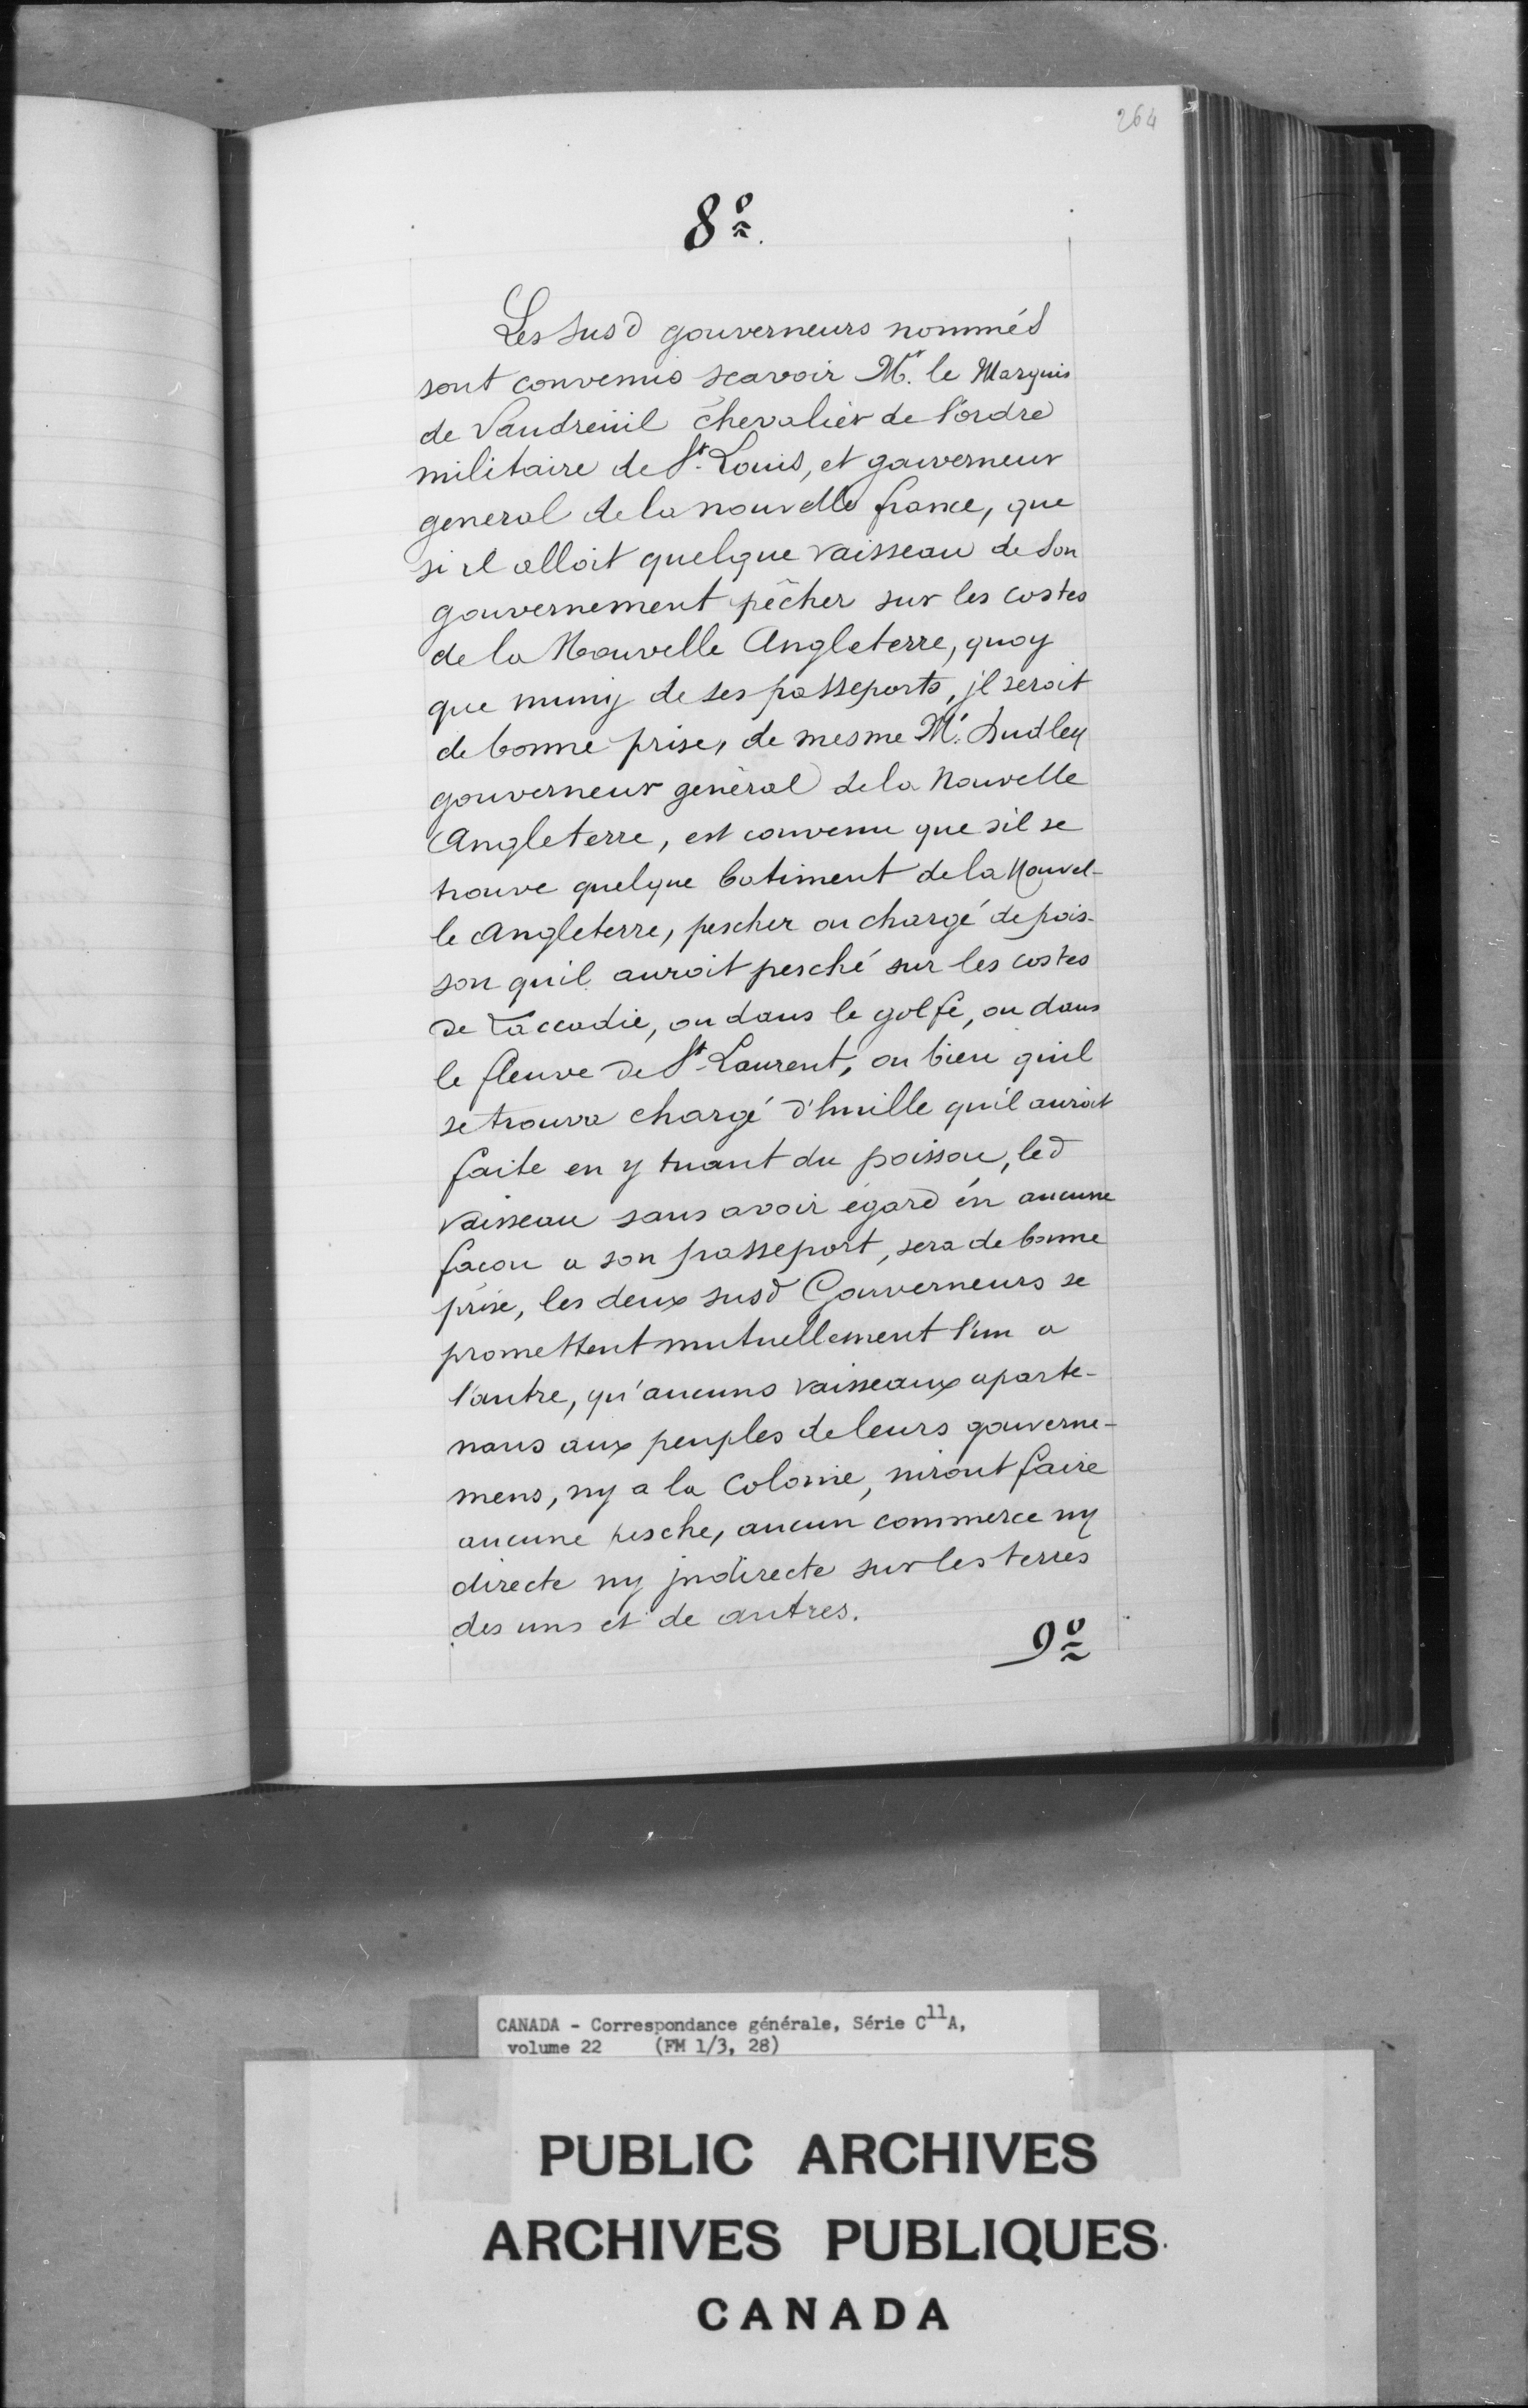 264
8º.
Les susd gouverneurs nommés
sont convenus scavoir Mr. le Marquis
de Vaudreuil chevalier de l'ordre
militaire de St. Louis, et gouverneur
general de la nouvelle france, que
si il alloit quelque vaisseau de son
gouvernement pêcher sur les costes
de la Nouvelle Angleterre, quoy
que muny de ses passeports, jl seroit
de bonne prise, de mesme Mr. Dudley
gouverneur général de la Nouvelle
Angleterre, est convenu que sil se
trouve quelque batiment de la Nouvel-
le Angleterre, pescher ou chargé de pois-
son quil auroit pesché sur les costes
de Laccadie, ou dans le golfe, ou dans
le fleuve de St. Laurent, ou bien quil
se trouva chargé d'huille qu'il auroit
faite en y tuant du poisson, led
vaisseau sans avoir égard en aucune
facon a son passeport, sera de bonne
prise, les deux susd Gouverneurs se
promettent mutuellement l'un a
l'autre, qu'aucuns vaisseaux aparte-
nans aux peuples de leurs gouverne-
mens, ny a la Colonie, niront faire
aucune pesche, aucun commerce ny
directe ny jndirecte sur les terres
des uns et de autres.
9º
CANADA - Correspondance générale, Série C11A,
volume 22 (FM 1/3, 28)
PUBLIC ARCHIVES
ARCHIVES PUBLIQUES
CANADA